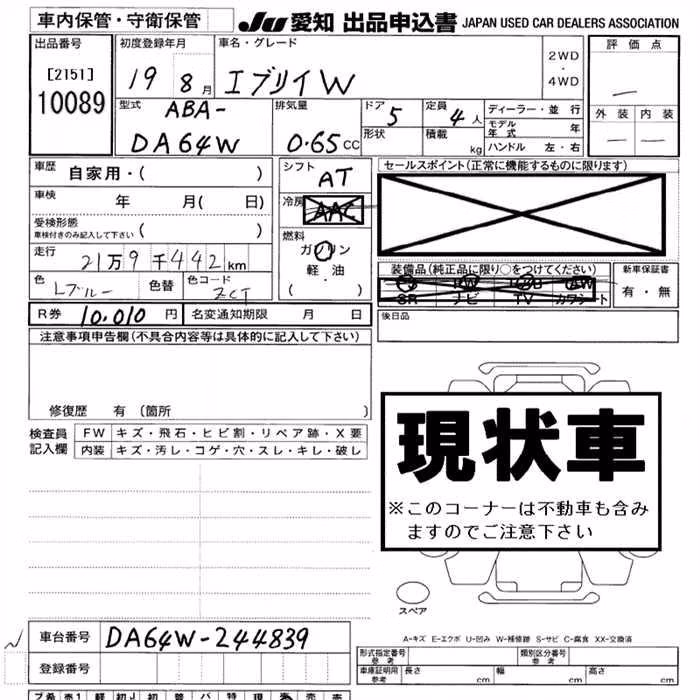 車内保管・守衛保管 JU 愛知 出品申込書 JAPAN USED CAR DEALERS ASSOCIATION
出品番号 初度登録年月 車名・グレード 評価点
[2151] 19 8月 エブリイW 2WD・4WD
10089 外装 内装
型式 ABA- 排気量 ドア 5 定員 4人 ディーラー・並行
DA64W 0.65CC 形状 積載 kg モデル年式 年
ハンドル 左・右
車歴 自家用・( ) シフト AT セールスポイント(正常に機能するものに限ります)
車検 年 月( 日) 冷房 AAC
受検形態 ( )
車検付きのみ記入して下さい
燃料 ガソリン・軽油 ( )
走行 21万9千442km
装備品(純正品に限り○をつけてください) 新車保証書
SR ナビ TV カワシート AW 有・無
色 Lブルー 色替 色コード ZCT
後日品
R券 10,010円 名変通知期限 月 日
注意事項申告欄(不具合内容等は具体的に記入して下さい)
修復歴 有 (箇所 )
現状車
※このコーナーは不動車も含み
ますのでご注意下さい
検査員 FW キズ・飛石・ヒビ割・リペア跡・X要
記入欄 内装 キズ・汚レ・コゲ・穴・スレ・キレ・破レ
スペア
A-キズ E-エクボ U-凹み W-補修跡 S-サビ C-腐食 XX-交換済
車台番号 DA64W-244839
登録番号
型式指定番号 参考 類別区分番号 参考
車庫証明用 参考 長さ cm 幅 cm 高さ cm